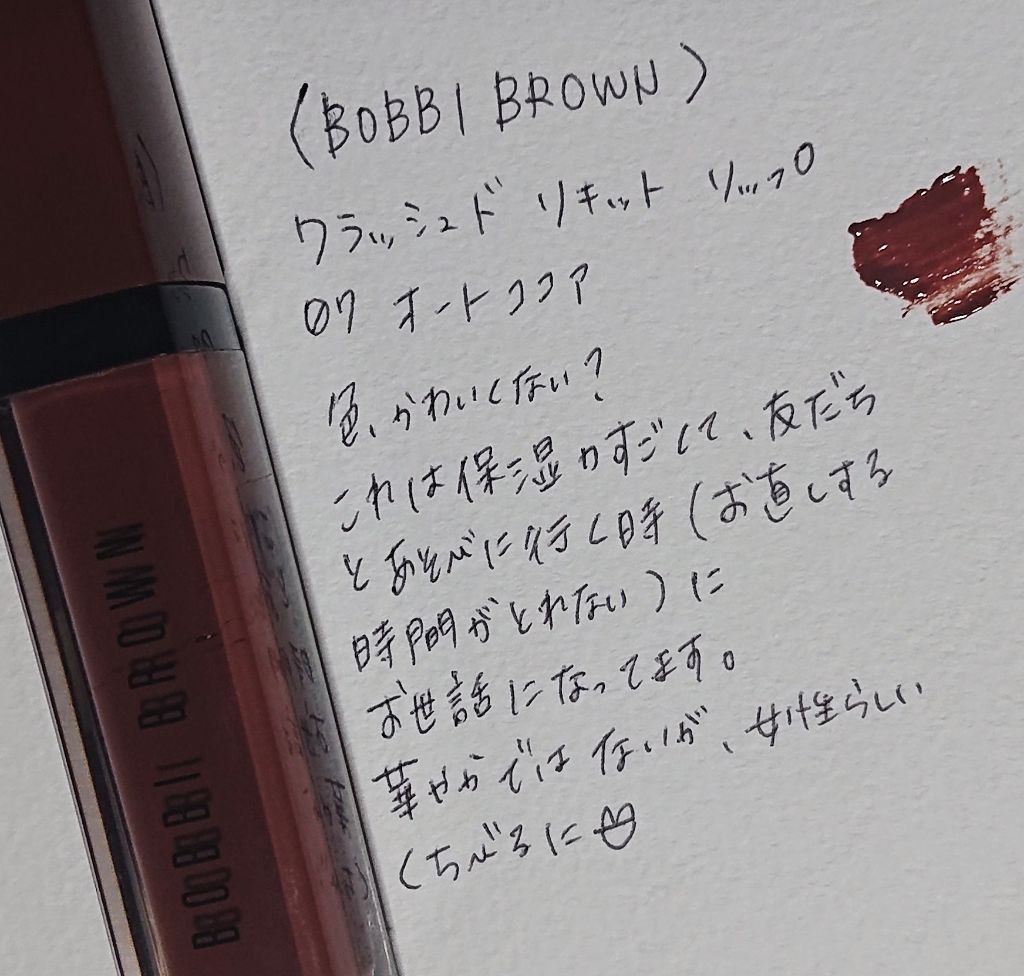 (BOBBI BROWN)
クラッシュド リキッド リップ
07 オートココア
色、かわいくない?
これは保湿がすごくて、友だち
とあそびに行く時(お直しする
時間がとれない)に
お世話になってます。
華やかではないが、女性らしい
くちびるに
BOBBI BROWN